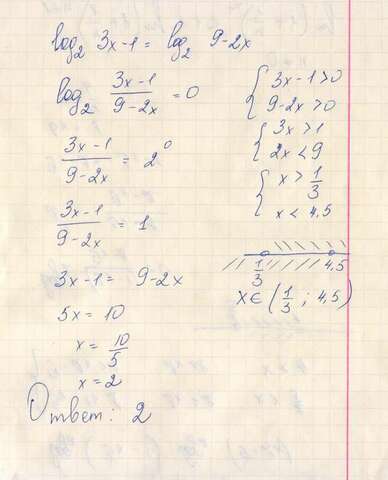 log₂ 3x-1 = log₂ 9-2x
log₂ (3x-1)/(9-2x) = 0
(3x-1)/(9-2x) = 2⁰
(3x-1)/(9-2x) = 1
3x-1 = 9-2x
5x = 10
x = 10/5
x = 2
Ответ: 2
{ 3x-1>0
9-2x>0
{ 3x>1
2x<9
{ x > 1/3
x < 4,5
1/3 4,5
x∈(1/3; 4,5)